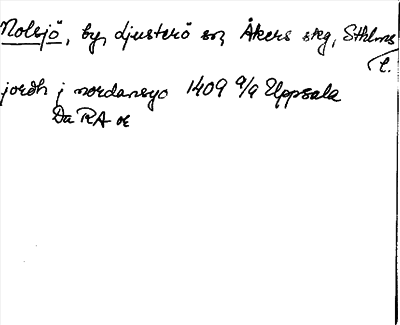 Nolsjö, by, Djusterö sn, Åkers skg, Sthlms
l.
jordh j nordansyo 1409 9/9 Uppsala
Da RA or